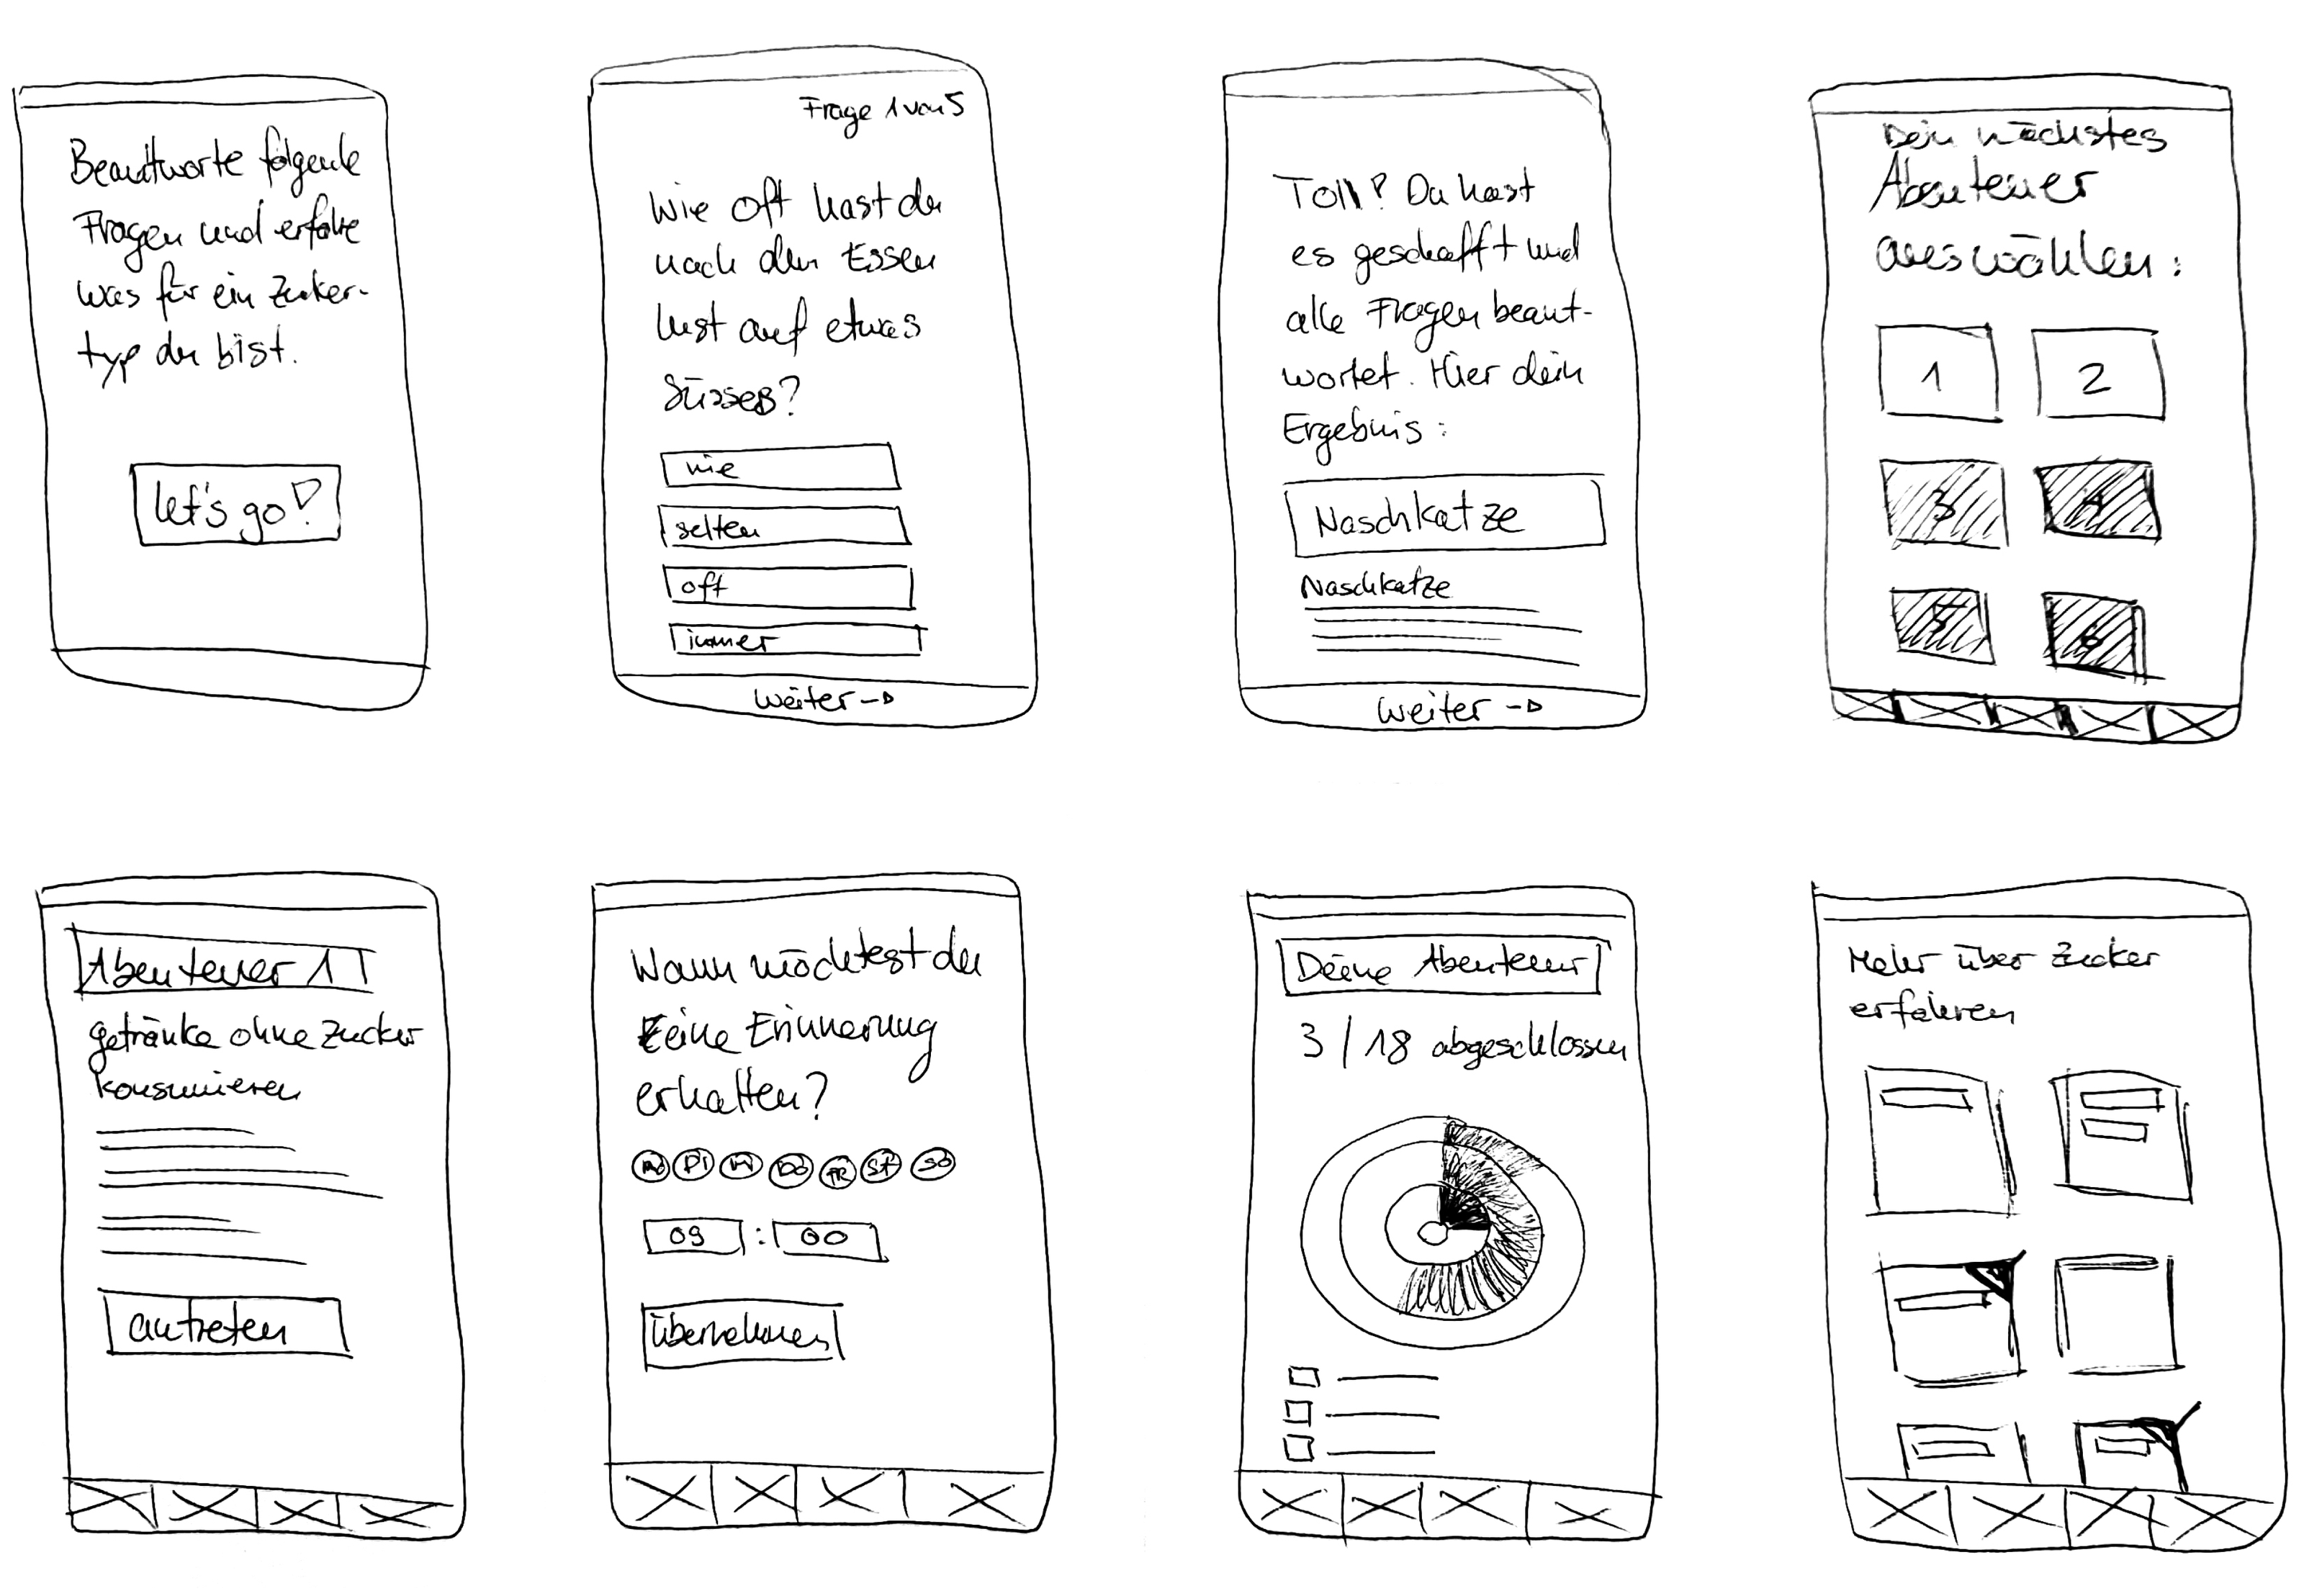 Beantworte folgende
Fragen und erfahre
was für ein Zucker-
typ du bist.
let's go!
Frage 1 von 5
Wie oft hast du
nach dem Essen
lust auf etwas
Süsses?
nie
selten
oft
immer
weiter
Toll! Du hast
es geschafft und
alle Fragen beant-
wortet. Hier dein
Ergebnis:
Naschkatze
Naschkatze
weiter
Dein nächstes
Abenteuer
auswählen:
1
2
3
4
5
6
Abenteuer 1
getränke ohne Zucker
konsumieren
antreten
Wann möchtest du
eine Erinnerung
erhalten?
Mo DI MI DO FR SA SO
09 : 00
übernehmen
Deine Abenteuer
3 / 18 abgeschlossen
Mehr über Zucker
erfahren